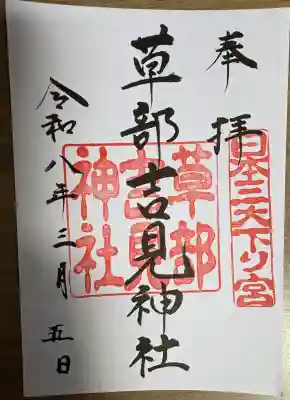 奉拝
日本三大下り宮
草部吉見神社
草部吉見神社
令和八年三月五日